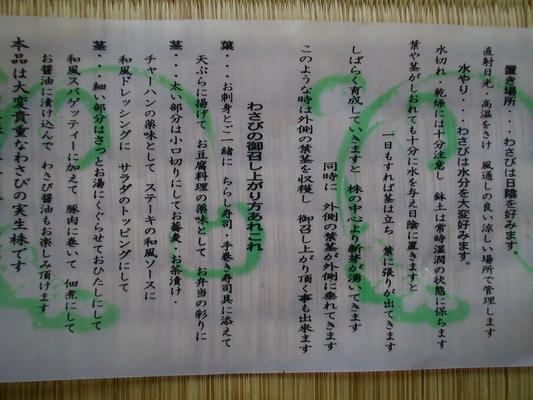 置き場所・・・わさびは日陰を好みます。
直射日光、高温をさけ 風通しの良い涼しい場所で管理します
水やり・・・わさびは水分を大変好みます。
水切れ、乾燥には十分注意し 鉢土は常時湿潤の状態に保ちます
葉や茎がしおれても十分に水を与え日陰に置きますと
一日もすれば茎は立ち 葉に張りが出てきます
しばらく育成していきますと 株の中心より新芽が湧いてきます
同時に 外側の葉茎が外側に垂れてきます
このような時は外側の葉茎を収穫し 御召し上がり頂く事も出来ます
わさびの御召し上がり方あれこれ
葉・・・お刺身とご一緒に ちらし寿司・手巻き寿司具に添えて
天ぷらに揚げて お豆腐料理の薬味として お弁当の彩りに
茎・・・太い部分は小口切りにしてお蕎麦・お茶漬け・
チャーハンの薬味として ステーキの和風ソースに
和風ドレッシングに サラダのトッピングにして
茎・・・細い部分はさっとお湯にくぐらせておひたしにして
和風スパゲッティーに加えて 豚肉に巻いて 佃煮にして
お醤油に漬け込んで わさび醤油もお楽しみ頂けます
本品は大変貴重なわさびの実生株です